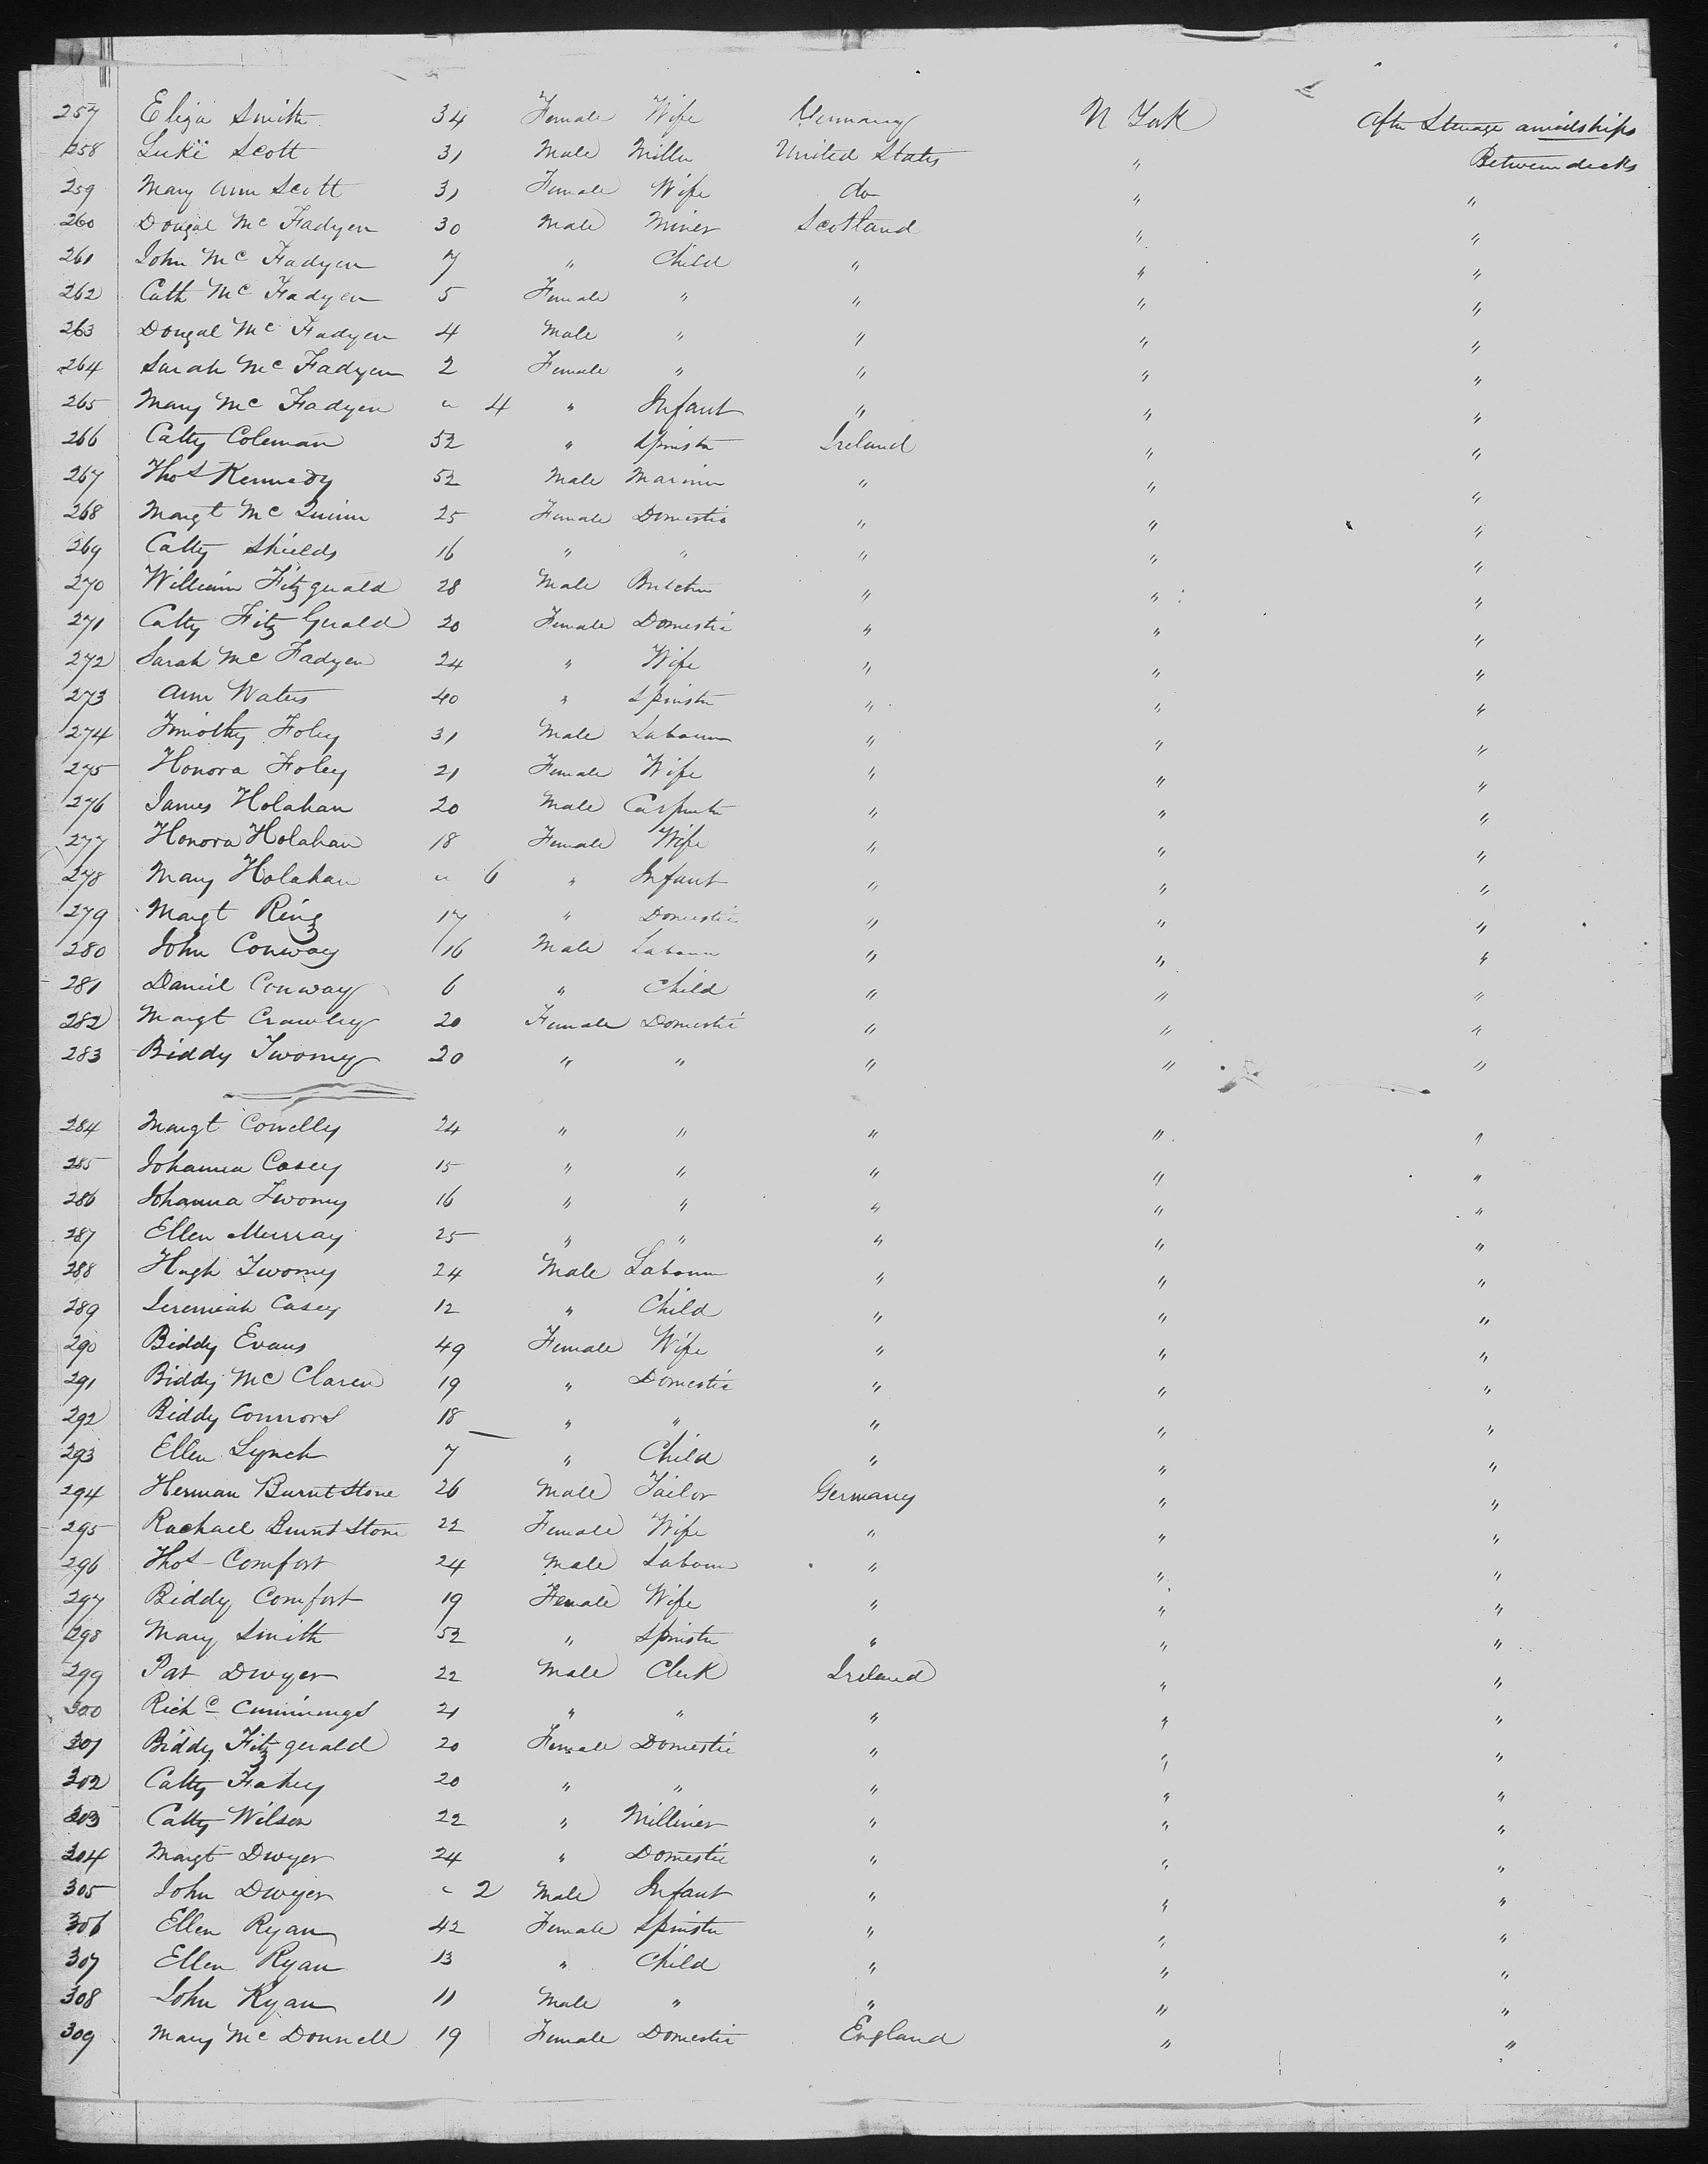 257 Eliza Smith 34 Female Wife Germany N York After Steerage amidships
258 Luke Scott 31 Male Miller United States " Between decks
259 Mary Ann Scott 31 Female Wife do " "
260 Dougal Mc Fadyen 30 Male Miner Scotland " "
261 John Mc Fadyen 7 " Child " " "
262 Cath Mc Fadyen 5 Female " " " "
263 Dougal Mc Fadyen 4 Male " " " "
264 Sarah Mc Fadyen 2 Female " " " "
265 Mary Mc Fadyen " 4 " Infant " " "
266 Catty Coleman 52 " Spinster Ireland " "
267 Thos Kennedy 52 Male Mariner " " "
268 Margt Mc Quinn 25 Female Domestic " " "
269 Catty Shields 16 " " " " "
270 William Fitzgerald 28 Male Butcher " " "
271 Catty Fitz Gerald 20 Female Domestic " " "
272 Sarah Mc Fadyen 24 " Wife " " "
273 Ann Waters 40 " Spinster " " "
274 Timothy Foley 31 Male Labourer " " "
275 Honora Foley 21 Female Wife " " "
276 James Holahan 20 Male Carpenter " " "
277 Honora Holahan 18 Female Wife " " "
278 Mary Holahan " 6 " Infant " " "
279 Margt Ring 17 " Domestic " " "
280 John Conway 16 Male Labourer " " "
281 Daniel Conway 6 " Child " " "
282 Margt Crawley 20 Female Domestic " " "
283 Biddy Twomy 20 " " " " "
284 Margt Conelly 24 " " " " "
285 Johanna Casey 15 " " " " "
286 Johanna Twomy 16 " " " " "
287 Ellen Murray 25 " " " " "
288 Hugh Twomy 24 Male Labourer " " "
289 Jeremiah Casey 12 " Child " " "
290 Biddy Evans 49 Female Wife " " "
291 Biddy Mc Claren 19 " Domestic " " "
292 Biddy Connors 18 " " " " "
293 Ellen Lynch 7 " Child " " "
294 Herman Burnt Stone 26 Male Tailor Germany " "
295 Rachael Burnt Stone 22 Female Wife " " "
296 Thos Comfort 24 Male Labourer " " "
297 Biddy Comfort 19 Female Wife " " "
298 Mary Smith 52 " Spinster " " "
299 Pat Dwyer 22 Male Clerk Ireland " "
300 Richd Cummings 21 " " " " "
301 Biddy Fitzgerald 20 Female Domestic " " "
302 Catty Fahey 20 " " " " "
303 Catty Wilson 22 " Milliner " " "
304 Margt Dwyer 24 " Domestic " " "
305 John Dwyer " 2 Male Infant " " "
306 Ellen Ryan 42 Female Spinster " " "
307 Ellen Ryan 13 " Child " " "
308 John Ryan 11 Male " " " "
309 Mary Mc Donnell 19 Female Domestic England " "